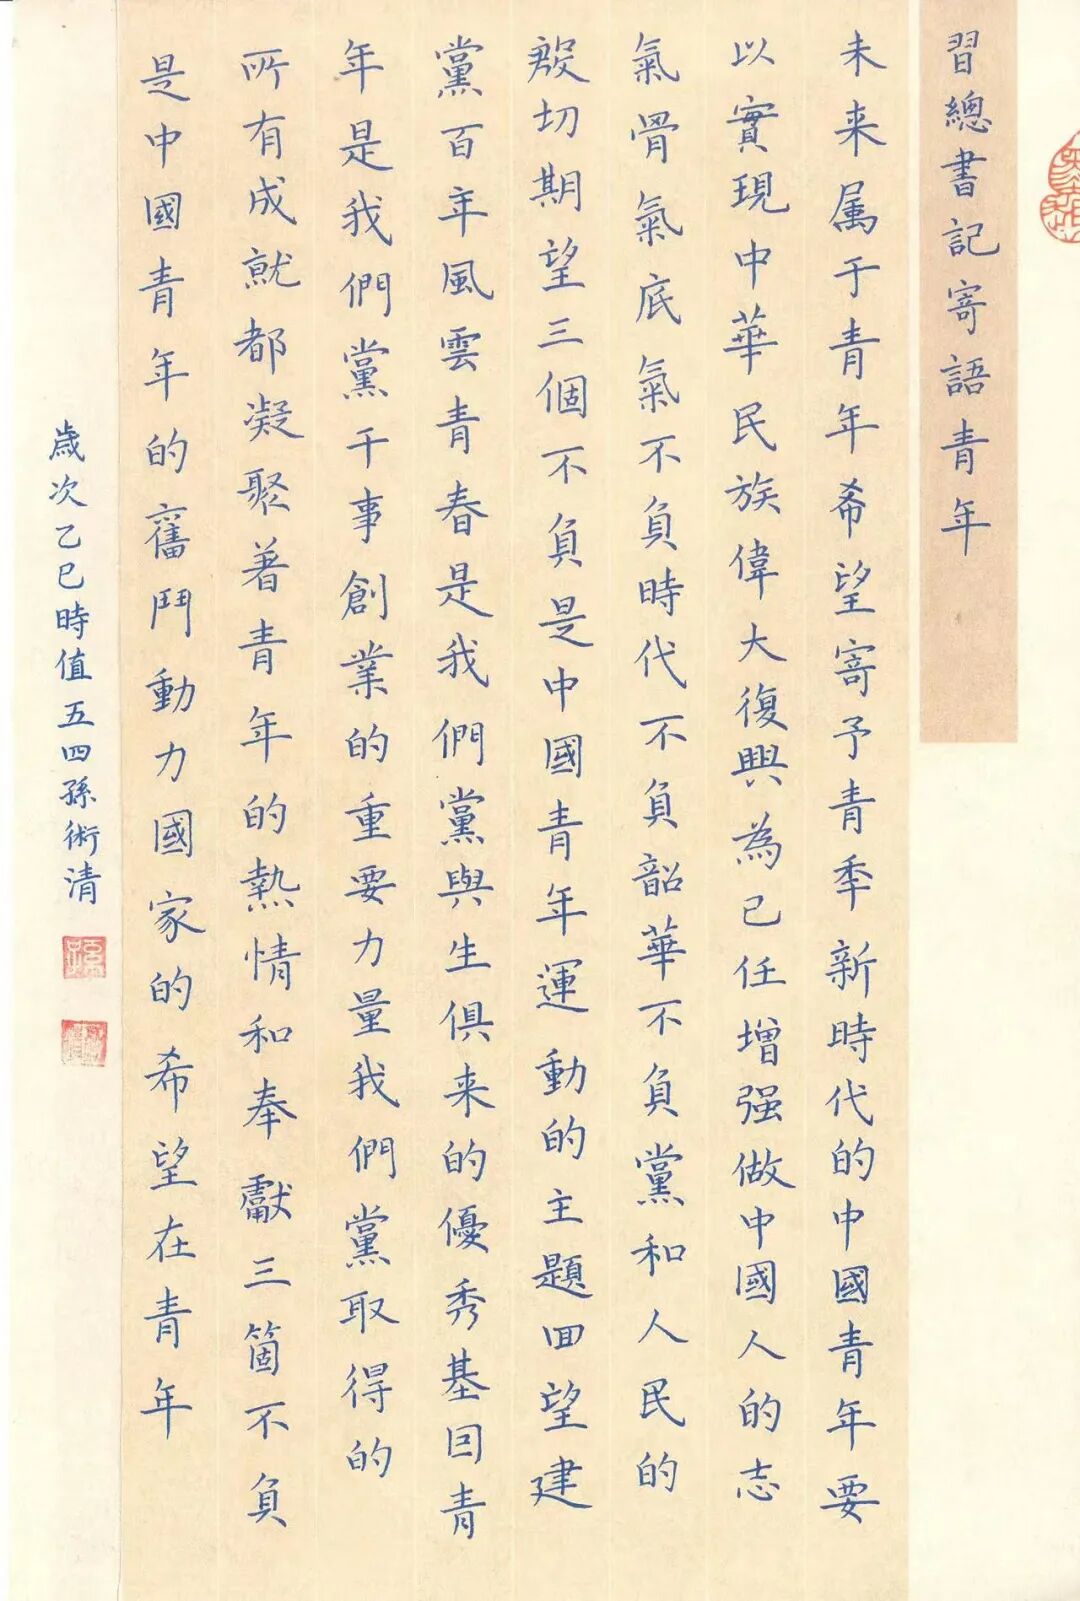 習總書記寄語青年
未来属于青年希望寄予青秊新時代的中國青年要
以實現中華民族偉大復興為己任增强做中國人的志
氣骨氣底氣不負時代不負韶華不負黨和人民的
殷切期望三個不負是中國青年運動的主題回望建
黨百年風雲青春是我們黨與生俱来的優秀基因青
年是我們黨干事創業的重要力量我們黨取得的
所有成就都凝聚着青年的熱情和奉獻三箇不負
是中國青年的奮鬥動力國家的希望在青年
歲次乙巳時值五四孫術清